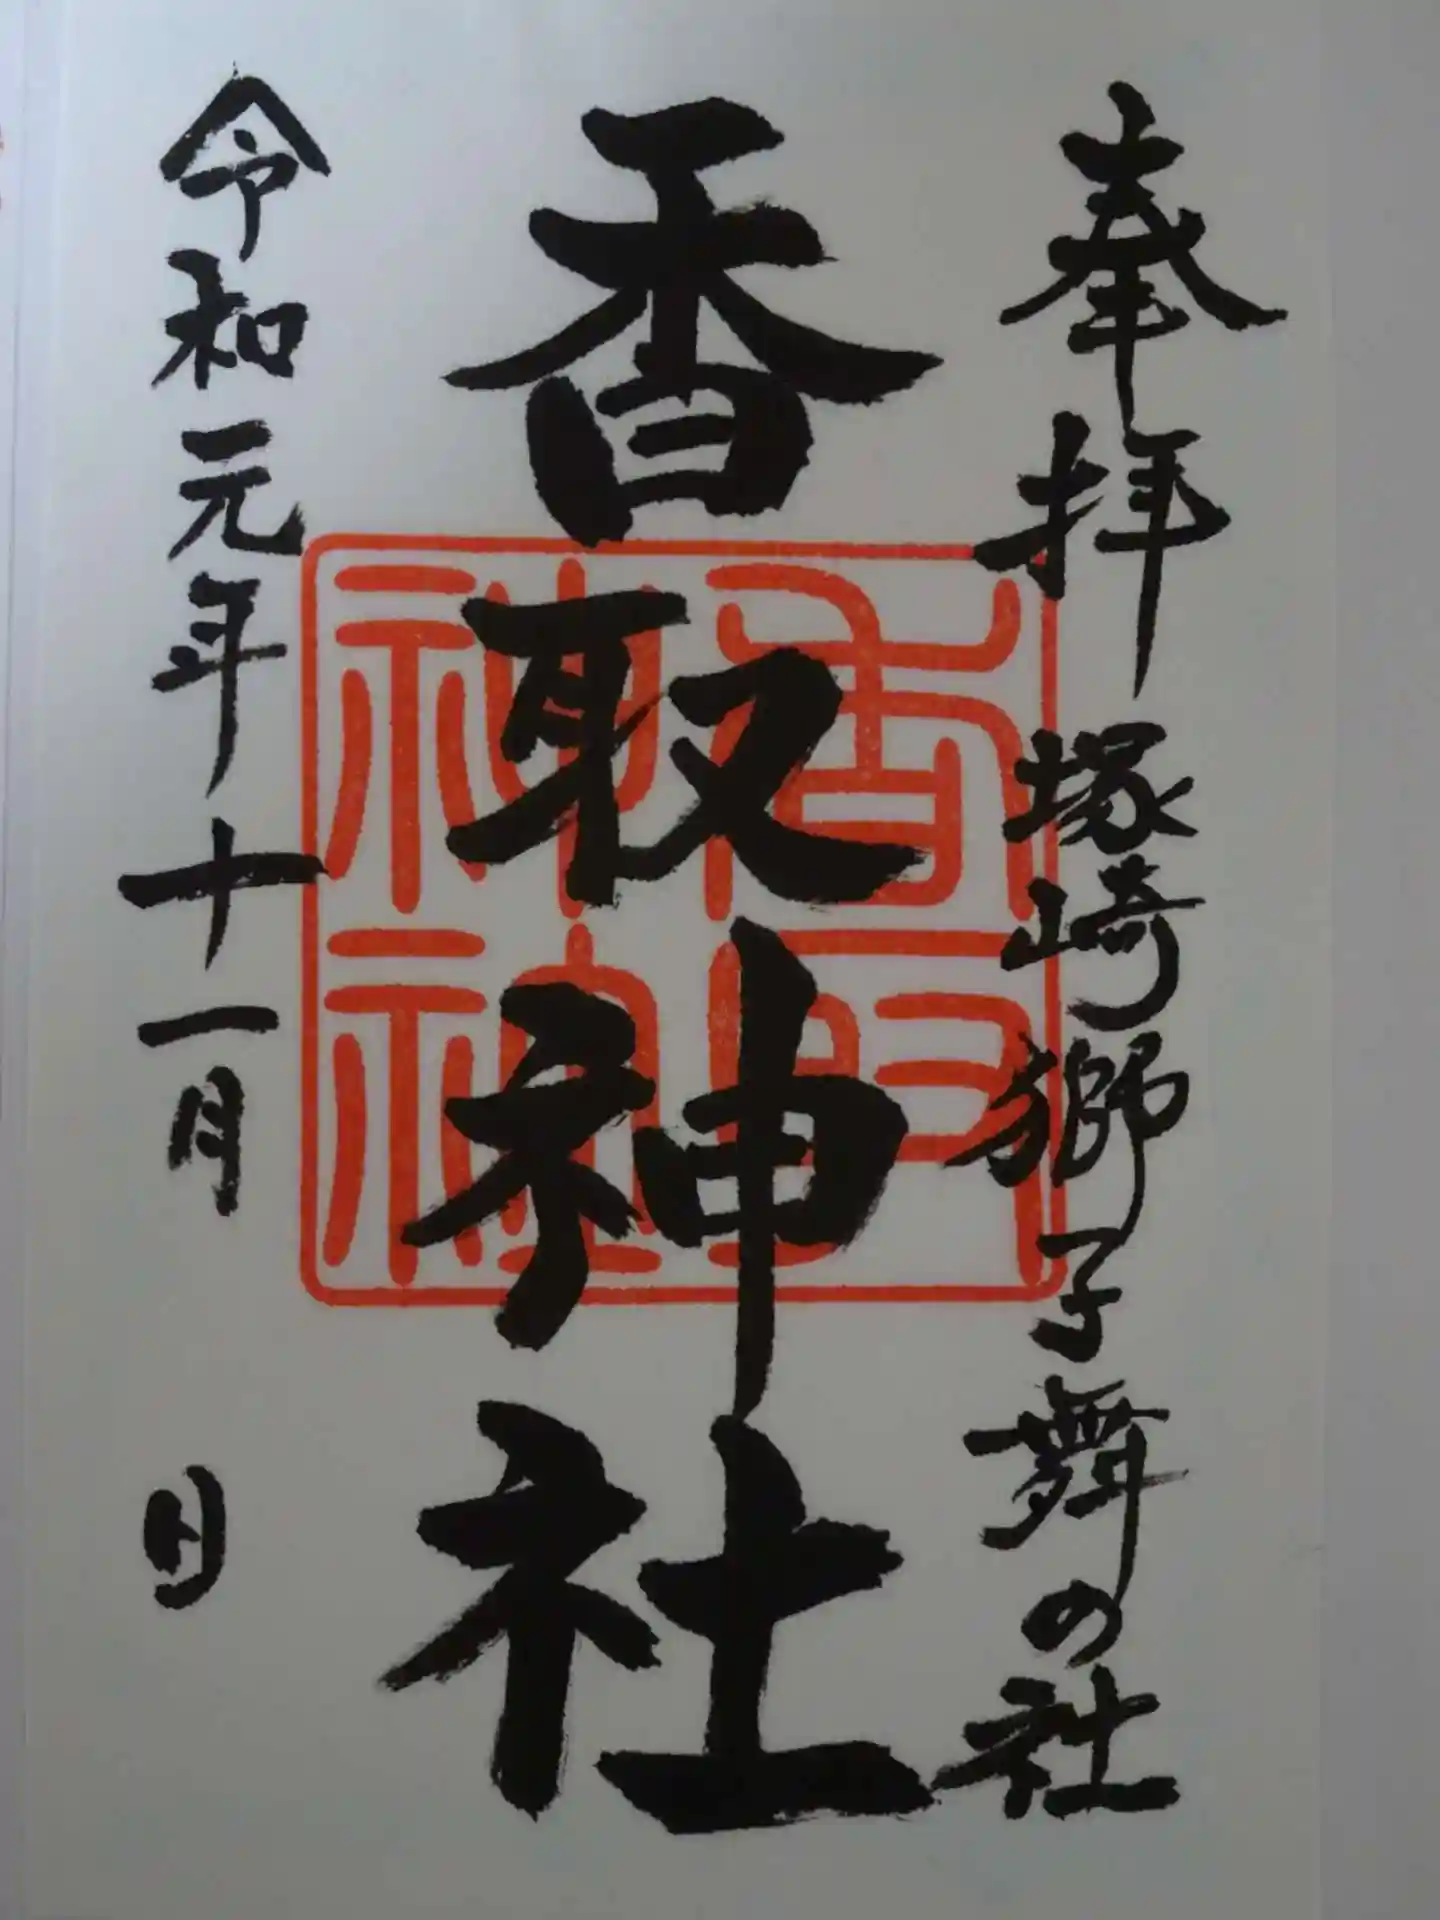 奉拝 塚崎獅子舞の社
香取神社
令和元年十一月 日
香取
神社